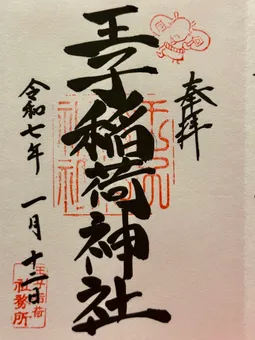 奉拝
王子稲荷神社
令和七年 一月十二日
王子稲荷
社務所